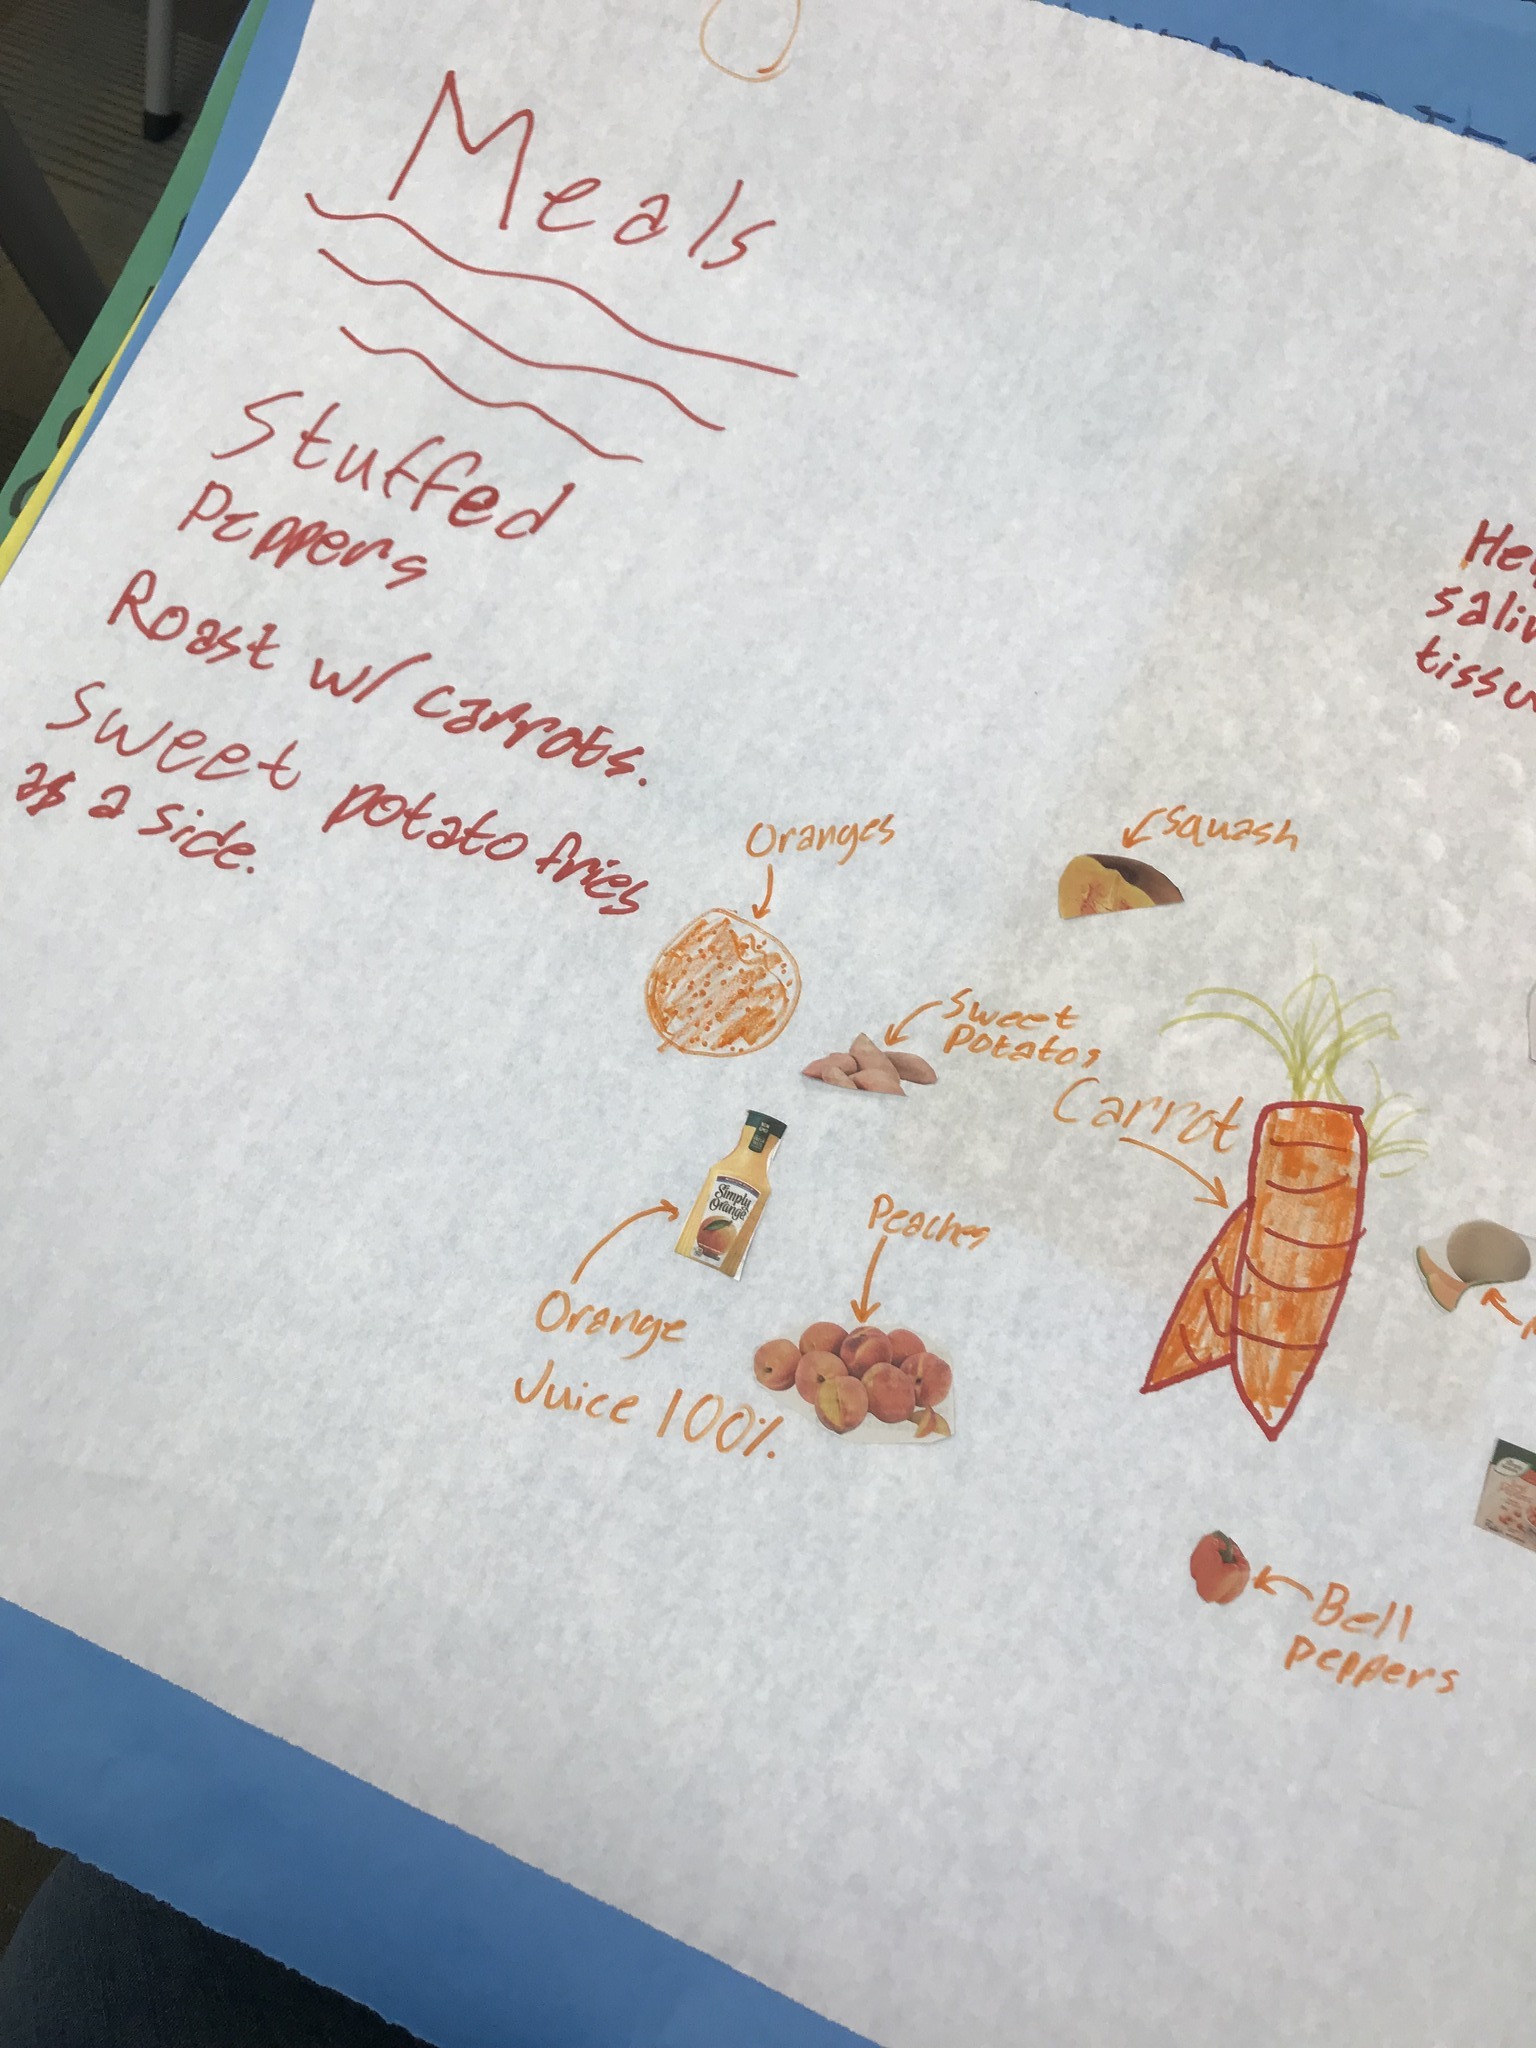 Meals
Stuffed
Peppers
Roast w/ carrots.
Sweet potato fries
as a side.
Oranges
Squash
Sweet
Potatos
Carrot
Simply
Orange
Peaches
Orange
Juice 100%
Bell
peppers